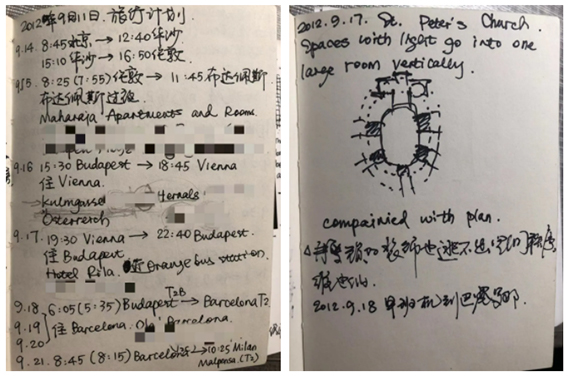 2012年9月11日. 旅行计划.
9.14. 8:45北京 → 12:40华沙
15:10 华沙 → 16:50伦敦
9.15. 8:25(7:55)伦敦 → 11:45布达佩斯
布达佩斯过夜.
Maharaja Apartments and Rooms.
9.16 15:30 Budapest → 18:45 Vienna
住 Vienna.
Kulmgasse Hernals
Österreich
9.17. 19:30 Vienna → 22:40 Budapest.
住 Budapest
Hotel Rila. 近 Orange bus station.
9.18 6:05(5:35) Budapest T2B → Barcelona T2
9.19 住 Barcelona.
9.20
9.21. 8:45(8:15) Barcelona → 10:25 Milan
Malpensa (T2)
2012.9.17. St. Peter's Church.
Spaces with light go into one
large room vertically.
compainied with plan.
2012.9.18 早班机到巴塞罗那.